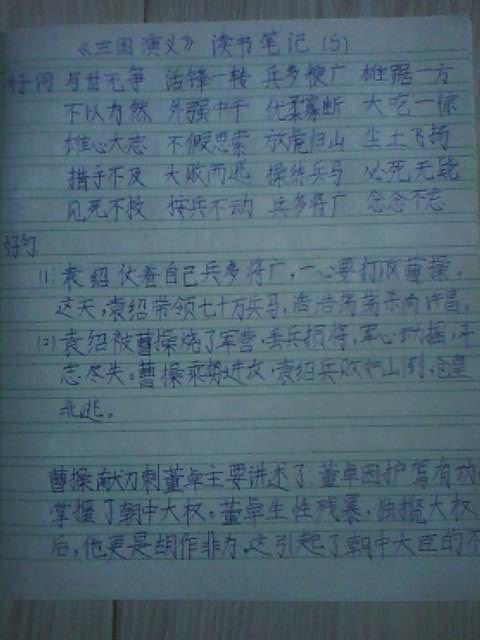 《三国演义》读书笔记(5)
好词 与世无争 话锋一转 兵多粮广 雄踞一方
不以为然 外强中干 优柔寡断 大吃一惊
雄心大志 不假思索 放虎归山 尘土飞扬
措手不及 大败而逃 操练兵马 必死无疑
见死不救 按兵不动 兵多将广 念念不忘
好句
(1)袁绍仗着自己兵多将广,一心要打败曹操。
这天,袁绍带领七十万兵马,浩浩荡荡杀向许昌。
(2)袁绍被曹操烧了军营,丢兵损将,军心动摇,斗
志尽失。曹操乘势进攻,袁绍兵败如山倒,仓皇
北逃。
曹操献刀刺董卓主要讲述了董卓因护驾有功
掌握了朝中大权。董卓生性残暴,独揽大权
后,他更是胡作非为,这引起了朝中大臣的不